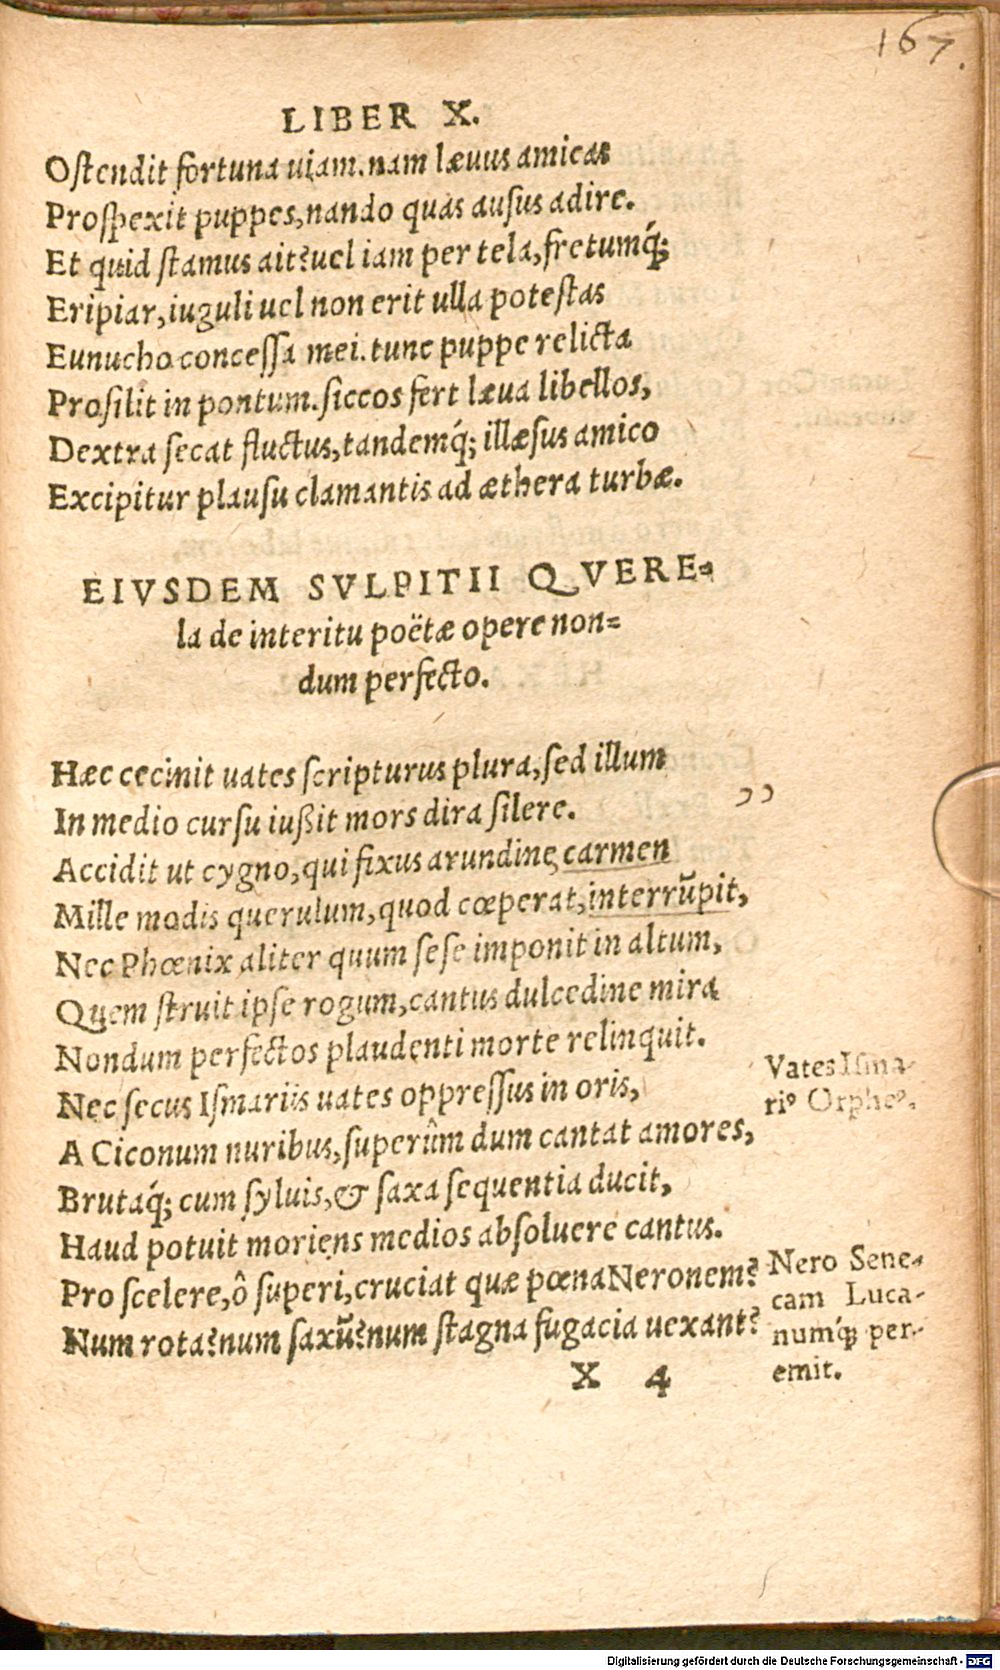 167.
LIBER X.
Ostendit fortuna uiam. nam læuus amicas
Prospexit puppes, nando quas ausus adire.
Et quid stamus ait? uel iam per tela, fretumq́;
Eripiar, iuguli uel non erit ulla potestas
Eunucho concessa mei. tunc puppe relicta
Prosilit in pontum. siccos fert læua libellos,
Dextra secat fluctus, tandemq́; illæsus amico
Excipitur plausu clamantis ad æthera turbæ.
EIVSDEM SVLPITII QVERE=
la de interitu poëtæ opere non=
dum perfecto.
Hæc cecinit uates scripturus plura, sed illum
In medio cursu iußit mors dira silere.
Accidit ut cygno, qui fixus arundine, carmen
Mille modis querulum, quod cœperat, interrūpit,
Nec Phœnix aliter quum sese imponit in altum,
Quem struit ipse rogum, cantus dulcedine mira
Nondum perfectos plaudenti morte relinquit.
Nec secus Ismariis uates oppressus in oris,
A Ciconum nuribus, superûm dum cantat amores,
Brutaq́; cum syluis, & saxa sequentia ducit,
Haud potuit moriens medios absoluere cantus.
Pro scelere, ô superi, cruciat quæ pœna Neronem?
Num rota? num saxū? num stagna fugacia uexant?
Vates Isma-
riꝰ Orpheꝰ.
Nero Sene-
cam Luca-
numq́; per-
emit.
X 4
Digitalisierung gefördert durch die Deutsche Forschungsgemeinschaft - DFG